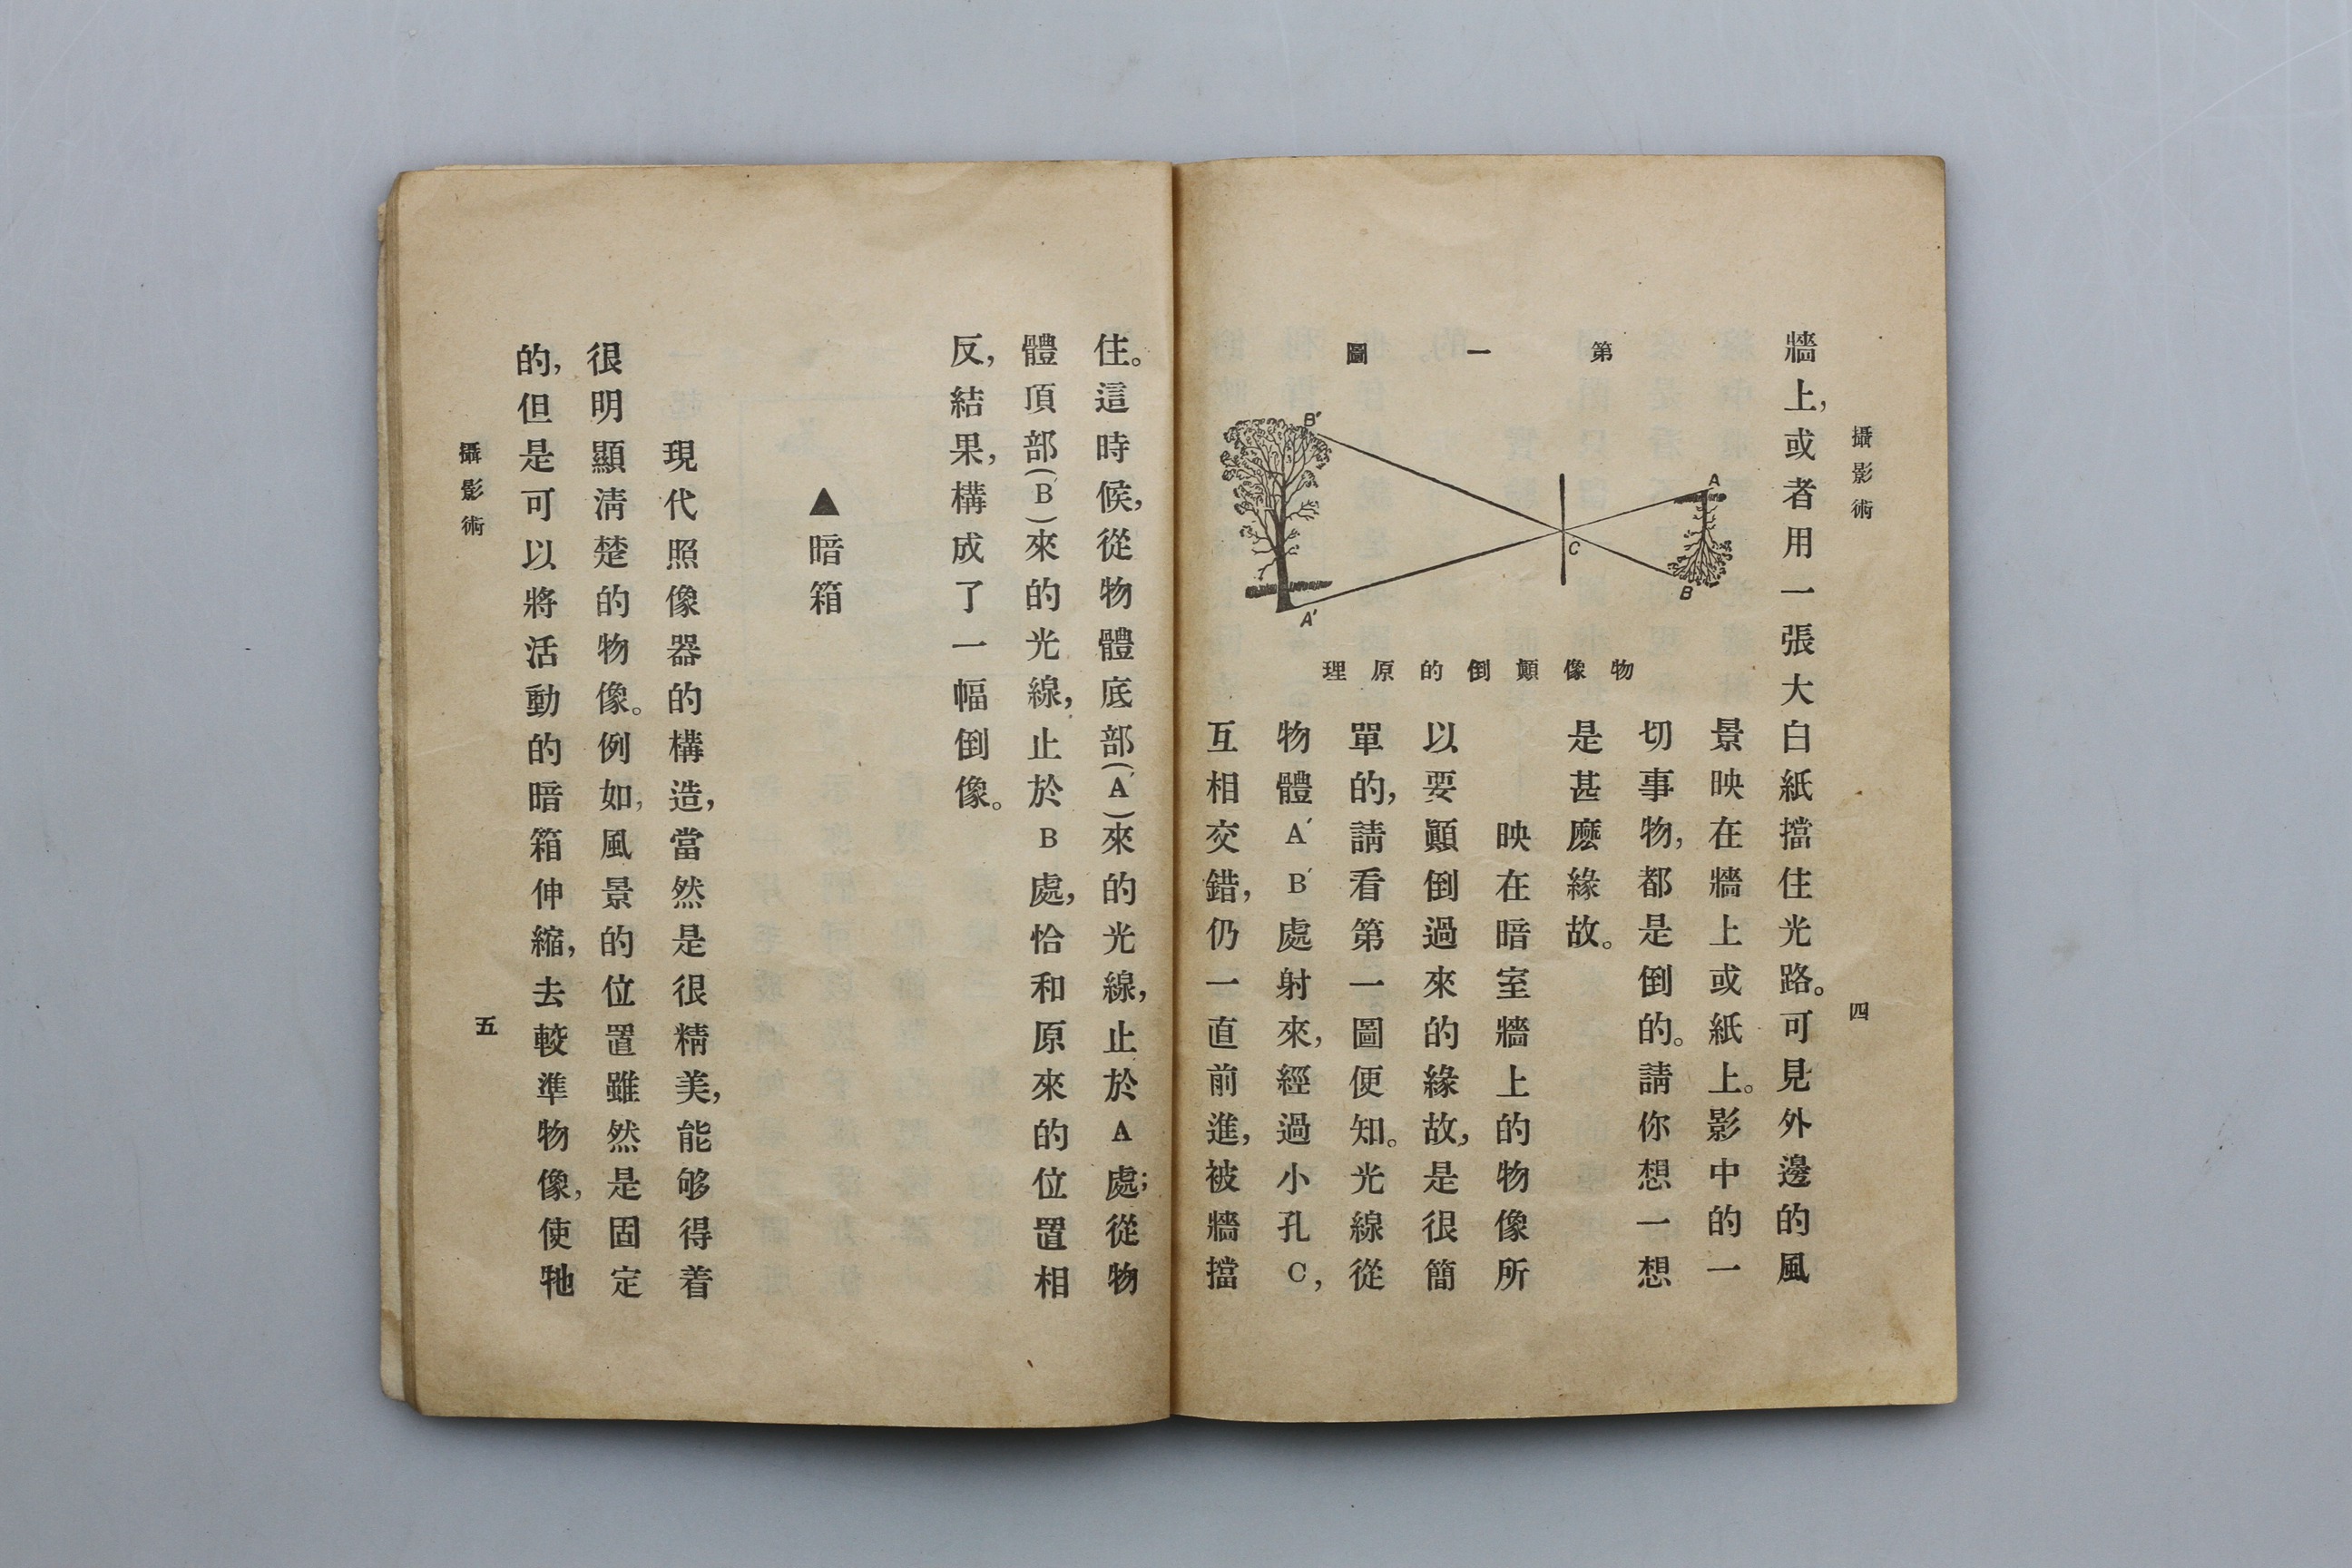 攝影術
四
牆上，或者用一張大白紙擋住光路。可見外邊的風
第一圖
B′
A
C
B
A′
物像顛倒的原理
景映在牆上或紙上。影中的一
切事物，都是倒的。請你想一想
是甚麽緣故。
映在暗室牆上的物像所
以要顚倒過來的緣故，是很簡
單的，請看第一圖便知。光線從
物體A′B′處射來，經過小孔C，
互相交錯，仍一直前進，被牆擋
住。這時候，從物體底部(A′)來的光線，止於A處；從物
體頂部(B′)來的光線，止於B處，恰和原來的位置相
反，結果，構成了一幅倒像。
▲暗箱
現代照像器的構造，當然是很精美，能够得着
很明顯淸楚的物像。例如，風景的位置雖然是固定
的，但是可以將活動的暗箱伸縮，去較準物像，使牠
攝影術
五